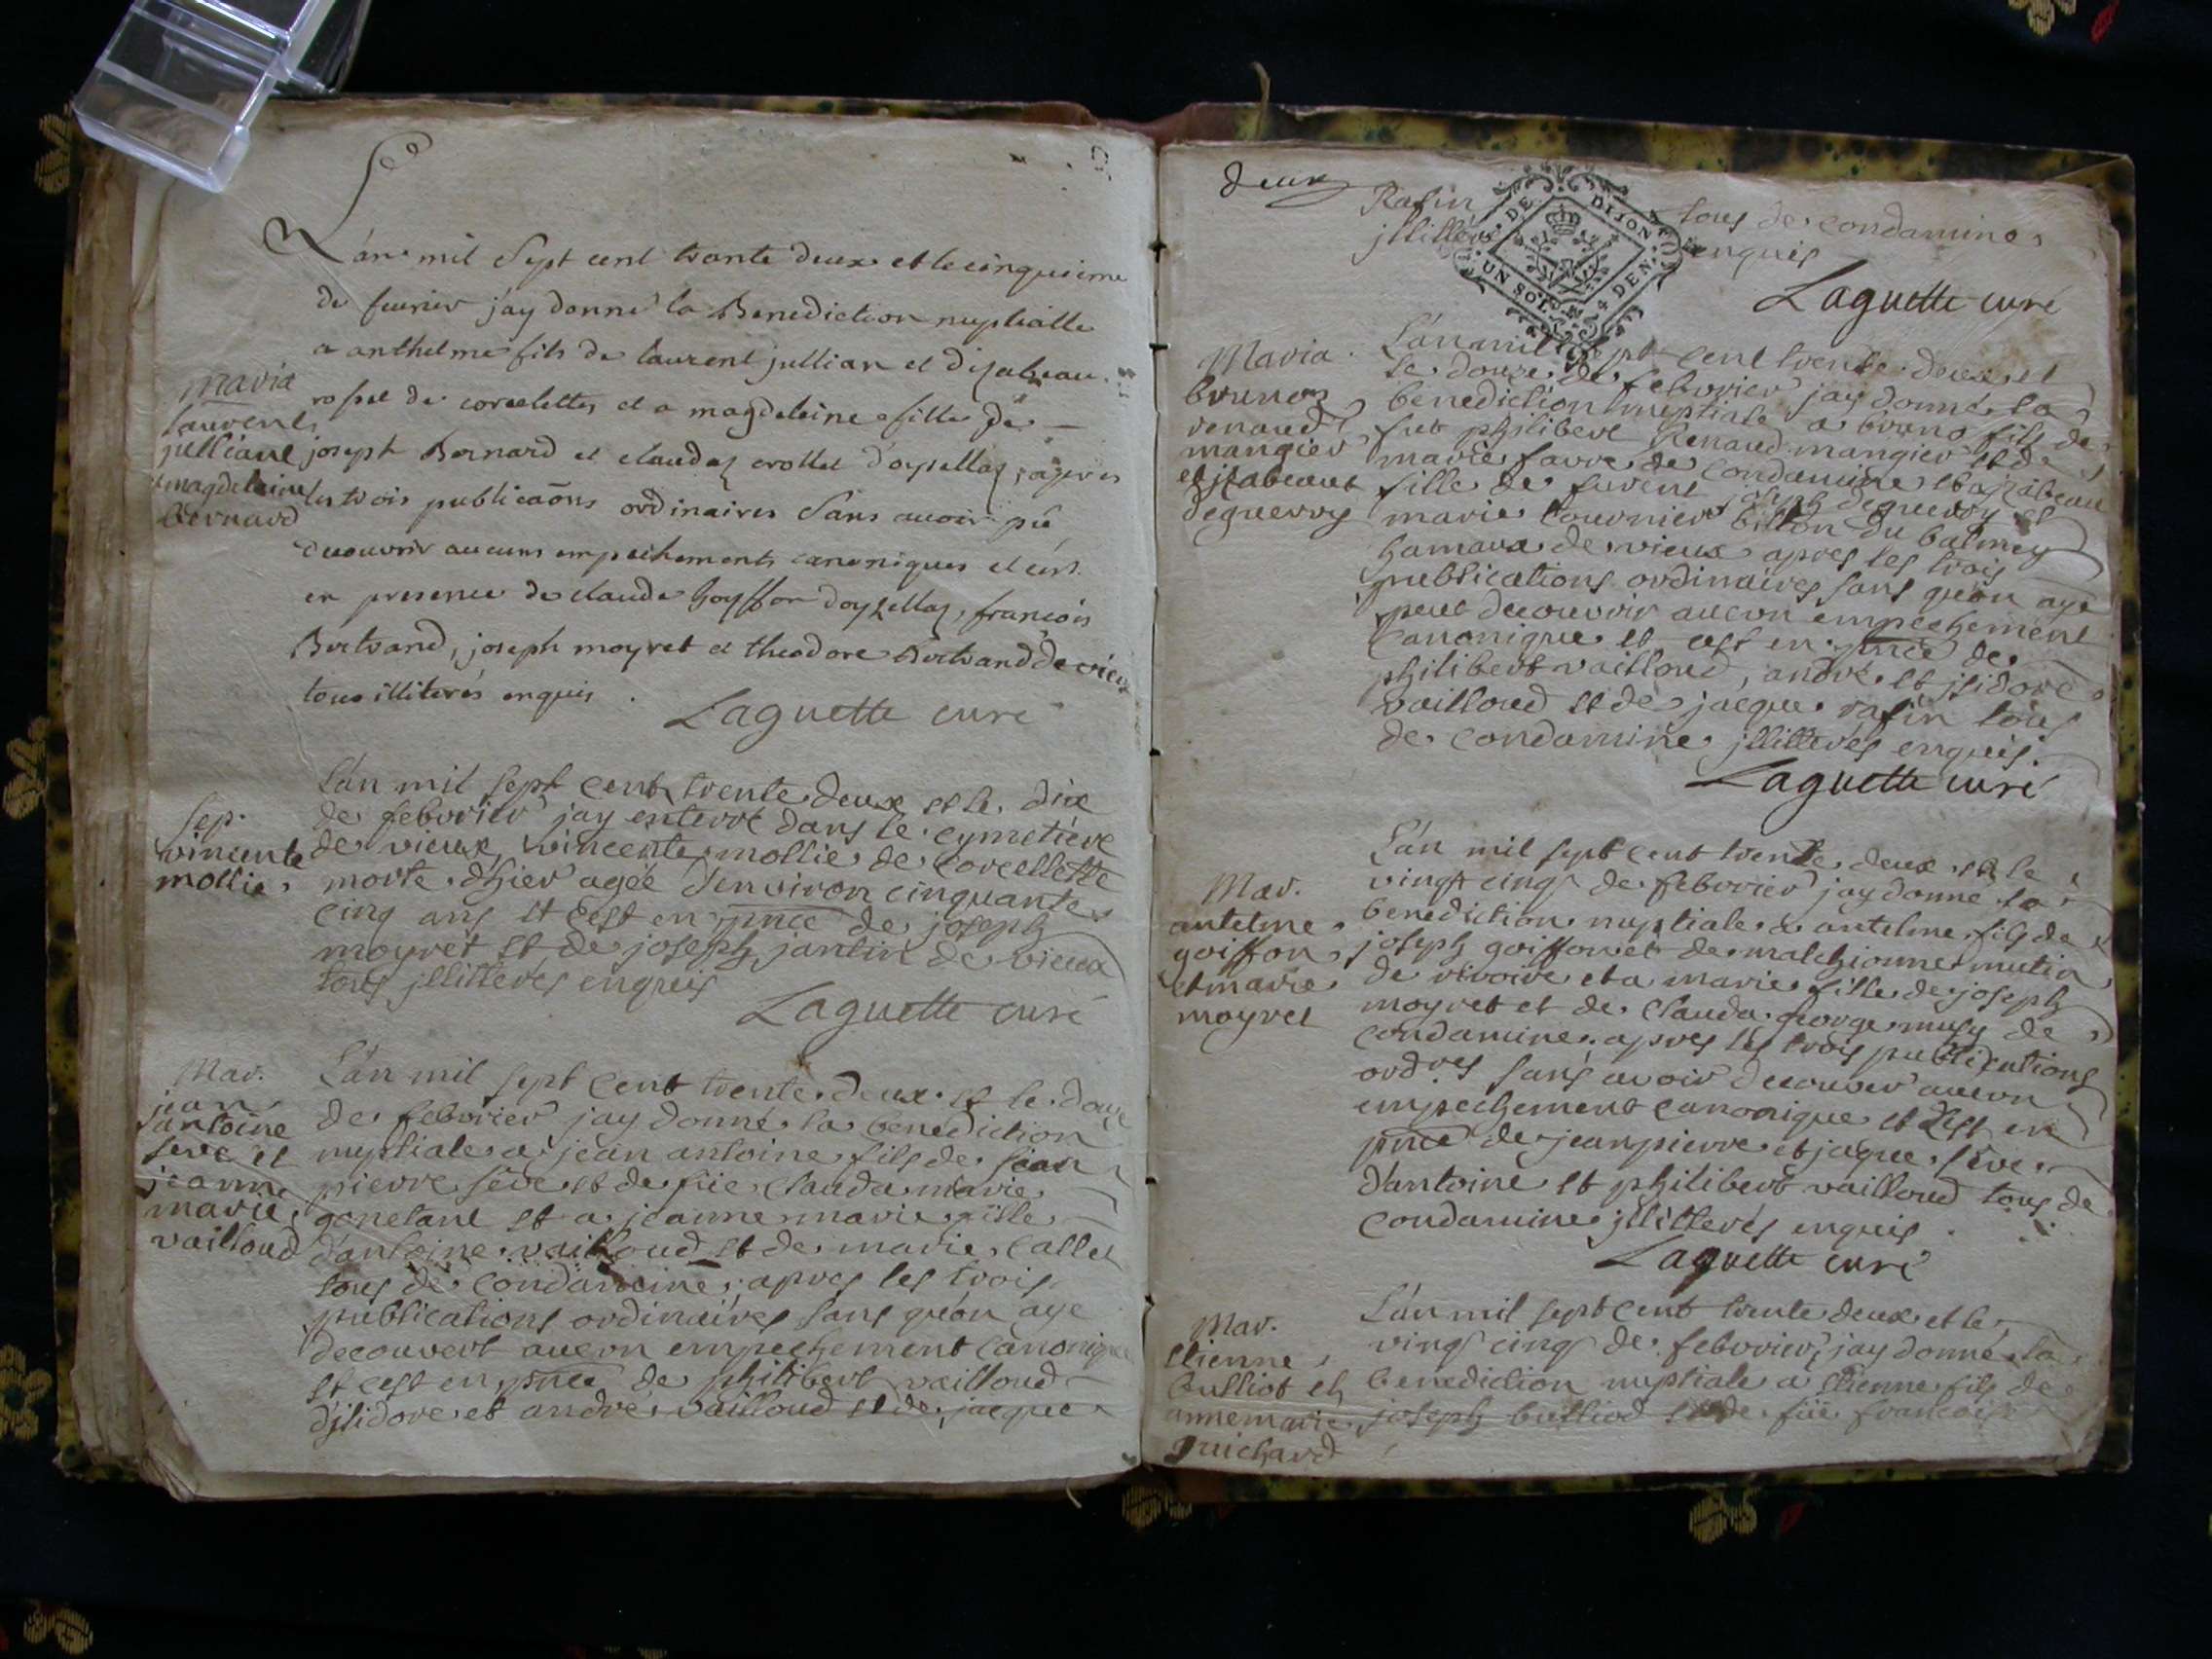 L'an mil Sept cent trante deux et le cinquieme
de feurier jay donné la Benediction nuptialle
a anthelme fils de laurent jullian et dizabeau
rosset de corcelettes et a magdeleine fille de
joseph Bernard et claudaz crollet d'oysellaz, apres
les trois publicaõns ordinaires Sans auoir pú
decouvrir aucuns empechements canoniques et c'est
en presence de claude hoyffon doyzellaz, francois
Bertrand, joseph moyret et theodore Bertrand de vieu
tous illiterés enquis.
Laguette curé
maria
laurent
julliane
magdeleine
bernard
L'an mil sept cent trente deux et le dix
de febvrier jay enterré dans le cymetiére
de vieux vincente mollie de corcellette
morte d'hier agée d'environ cinquante
cinq ans et c'est en pnce de joseph
moyret et de joseph jantin de vieux
tous jllitterés enquis
Laguette curé
Sep.
vincente
mollie
L'an mil sept cent trente deux et le douze
de febvrier jay donné la benediction
nuptiale a jean antoine fils de jean
pierre séve et de füe clauda marie
gonetant et a jeanne marie fille
d'antoine vailloud et de marie callet
tous de condamine, apres les trois
publications ordinaires sans qu'on aye
decouvert aucun empechement canonique
et c'est en pnce de philibert vailloud
d'jsidore et andré vailloud et de jacque
Mar.
jean
antoine
seve et
jeanne
marie
vailloud
deux
Rafin tous de condamine
jllitterés enquis
DE DIJON
UN SOL 4 DEN.
Laguette curé
L'an mil sept cent trente deux et
le douze de febvrier jay donné la
benediction nuptiale a bruno fils de
fut philibert Renaud mangier et de
marie favre de condamine et a jzabeau
fille de furent joseph deguerry et
marie tournier billon du balmey
hamaux de vieux apres les trois
publications ordinaires sans qu'on aye
peut decouvrir aucun empechement
canonique et c'est en pnce de
philibert vailloud, andré et jsidore
vailloud et de jacque rafin tous
de condamine jllitterés enquis.
Laguette curé
Maria
bruno
renaud
mangier
et jzabeaut
deguerry
L'an mil sept cent trente deux et le
vingt cinq de febvrier jay donné la
benediction nuptiale a antelme fils de
joseph goiffon et de malchionne mutin
de rivoire et a marie fille de joseph
moyret et de clauda george musy de
condamine apres les trois publications
ordres sans avoir decouver aucun
empechement canonique et c'est en
pnce de jean pierre et jaque séve
d'antoine et philibert vailloud tous de
condamine jllitterés enquis.
Laguette curé
Mar.
antelme
goiffon
et marie
moyret
L'an mil sept cent trente deux et le
vingt cinq de febvrier, jay donné la
benediction nuptiale a etienne fils de
joseph bulliod et de füe francoise
Mar.
etienne
bulliot et
anne marie
guichard